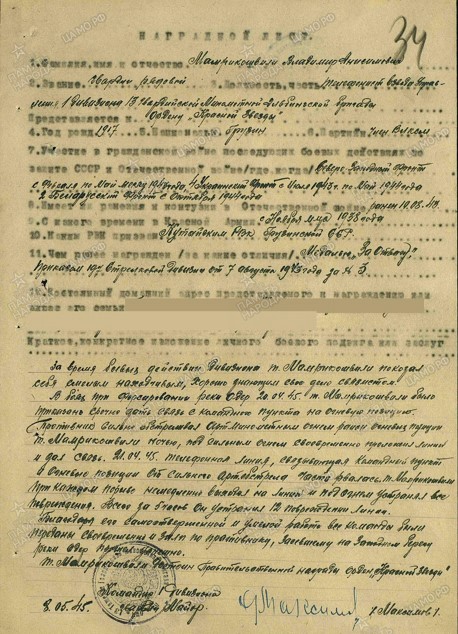 34
НАГРАДНОЙ ЛИСТ
1. Фамилия, имя и отчество Мамрикошвили Владимир
2. Звание Гвардии рядовой Должность, часть телефонист взвода управ-
ления 1 Дивизиона Гвардейской Минометной бригады
Представляется к Ордену "Красной Звезды"
4. Год рожд. 1917 5. Национальн. Грузин 6. Партийн.
7. Участие в гражданской войне последующих боевых действиях по
защите СССР и Отечественной войне /где, когда/ Северо Западный Фронт
с Февраля по Май месяц 4 Украинский Фронт с Июля 1943 г. по Май 1944 года
2 Белорусский Фронт с Октября 1944 года
ранения и контузии в Отечественной войне ранен
9. С какого времени в Красной Армии с Ноября м-ца 1938 года
10. Каким РВК призван РВК Грузинской ССР.
11. Чем ранее награжден /за какие отличия/ Медалью "За Отвагу"
Приказом Стрелковой Дивизии от 7 августа 1943 года за №
12. Постоянный домашний адрес представляемого к награждению или
адрес его семьи
Краткое, конкретное изложение личного боевого подвига или заслуг
За время боевых действий Дивизиона т. Мамрикошвили показал
себя смелым находчивым, хорошо знающим свое дело связистом.
В боях при форсировании реки Одер 20.04.45 г. т. Мамрикошвили было
приказано срочно дать связь с командного пункта на огневую позицию.
Противник сильно обстреливал Арт-минометным огнем район огневых позиций
т. Мамрикошвили ночью, под сильным огнем своевременно проложил линию
и дал связь. 21.04.45. телефонная линия, связывающая командный пункт
и огневые позиции от сильного артобстрела часто рвалась, т. Мамрикошвили
при каждом порыве немедленно выходил на линию и под огнем устранял все
повреждения. Всего за 5 часов он устранил 12 повреждений линии.
Благодаря его самоотверженной и умелой работе все команды были
переданы своевременно и залп по противнику, засевшему на Западном берегу
реки Одер
т. Мамрикошвили достоин Правительственной награды орден "Красной Звезды"
Командир 1 Дивизиона
Гвардии Майор
8.05.45.
/ Максимов /.
ЦАМО.РФ